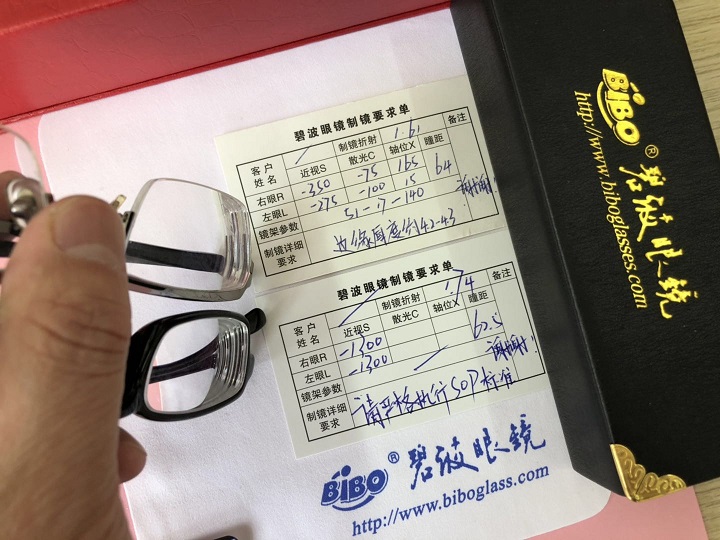 碧波眼镜制镜要求单
客户姓名 / 制镜折射 1.61 备注
近视S 散光C 轴位X 瞳距
右眼R -350 -75 165 64
左眼L -275 -100 15
镜架参数 51-17-140 谢谢!
制镜详细要求 边缘厚度约4.2-4.3
碧波眼镜制镜要求单
客户姓名 制镜折射 1.74 备注
近视S 散光C 轴位X 瞳距
右眼R -1300 60.5
左眼L -1300
镜架参数 谢谢!
制镜详细要求 请严格执行SOP标准
BiBO® 碧波眼镜
http://www.biboglass.com
BiBO® 碧波眼镜
http://www.biboglasses.com